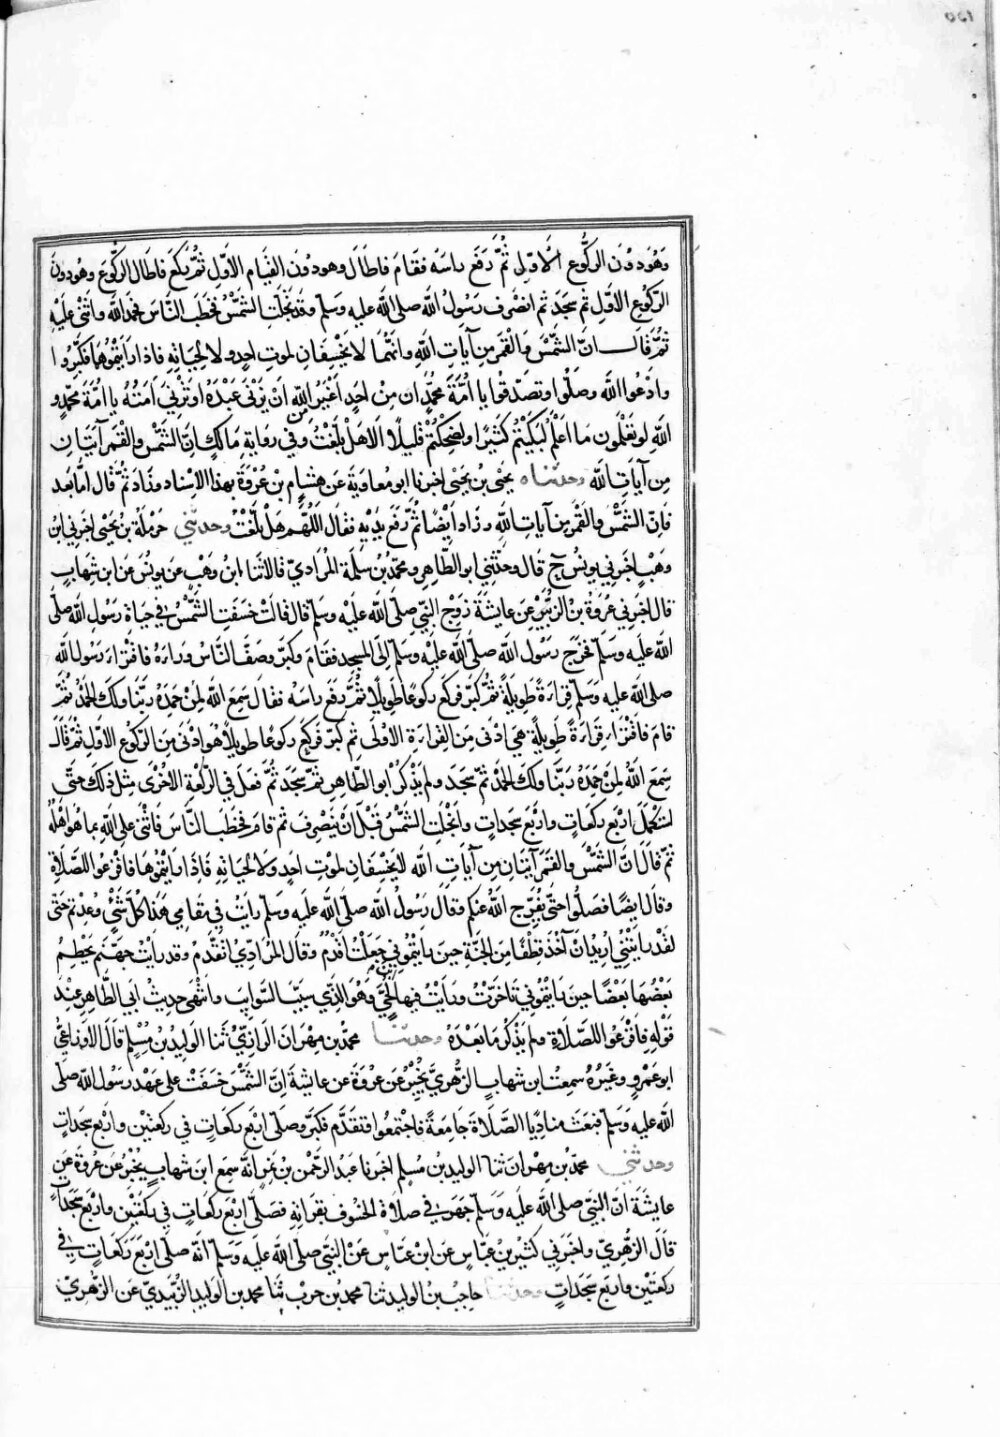 وهو دون الركوع الاول ثم رفع راسه فقام فاطال وهو دون القيام الاول ثم ركع فاطال الركوع وهو دون
الركوع الاول ثم سجد ثم انصرف رسول الله صلى الله عليه وسلم وقد تجلت الشمس فخطب الناس فحمد الله واثنى عليه
ثم قال ان الشمس والقمر من آيات الله وانهما لا يخسفان لموت احد ولا لحياته فاذا رايتموهما فكبروا
وادعوا الله وصلوا وتصدقوا يا امة محمد ان من احد اغير من الله ان يزني عبده او تزني امته يا امة محمد و
الله لو تعلمون ما اعلم لبكيتم كثيرا ولضحكتم قليلا الا هل بلغت وفي رواية مالك ان الشمس والقمر آيتان
من آيات الله وحدثناه يحيى بن يحيى اخبرنا ابو معاوية عن هشام بن عروة بهذا الاسناد وزاد ثم قال اما بعد
فان الشمس والقمر من آيات الله وزاد ايضا ثم رفع يديه فقال اللهم هل بلغت وحدثني حرملة بن يحيى اخبرني ابن
وهب اخبرني يونس ح قال وحدثني ابو الطاهر ومحمد بن سلمة المرادي قالا ثنا ابن وهب عن يونس عن ابن شهاب
قال اخبرني عروة بن الزبير عن عايشة زوج النبي صلى الله عليه وسلم قال قالت خسفت الشمس في حياة رسول الله صلى
الله عليه وسلم فخرج رسول الله صلى الله عليه وسلم الى المسجد فقام وكبر وصف الناس وراءه فاقتراء رسول الله
صلى الله عليه وسلم قراءة طويلة ثم كبر فركع ركوعا طويلا ثم رفع راسه فقال سمع الله لمن حمده ربنا ولك الحمد ثم
قام فاقتراء قراءة طويلة هي ادنى من القراءة الاولى ثم كبر فركع ركوعا طويلا هو ادنى من الركوع الاول ثم قال
سمع الله لمن حمده ربنا ولك الحمد ثم سجد ولم يذكر ابو الطاهر ثم سجد ثم فعل في الركعة الاخرى مثل ذلك حتى
استكمل اربع ركعات واربع سجدات وانجلت الشمس قبل ان ينصرف ثم قام فخطب الناس فاثنى على الله بما هو اهله
ثم قال ان الشمس والقمر آيتان من آيات الله لا يخسفان لموت احد ولا لحياته فاذا رايتموها فافزعوا للصلاة
وقال ايضا فصلوا حتى يفرج الله عنكم وقال رسول الله صلى الله عليه وسلم رايت في مقامي هذا كل شئ وعدتم حتى
لقد رايتني اريد ان آخذ قطفا من الجنة حين رايتموني جعلت اقدم وقال المرادي اتقدم وقد رايت جهنم يحطم
بعضها بعضا حين رايتموني تاخرت ورايت فيها ابن لحي وهو الذي سيب السوايب وانتهى حديث ابي الطاهر عند
قوله فافزعوا للصلاة ولم يذكر ما بعده وحدثنا محمد بن مهران الرازي ثنا الوليد بن مسلم قال قال الاوزاعي
ابو عمرو وغيره سمعت ابن شهاب الزهري يخبر عن عروة عن عايشة ان الشمس خسفت على عهد رسول الله صلى
الله عليه وسلم فبعث مناديا الصلاة جامعة فاجتمعوا فتقدم فكبر وصلى اربع ركعات في ركعتين واربع سجدات
وحدثني محمد بن مهران ثنا الوليد بن مسلم اخبرنا عبد الرحمن بن نمر انه سمع ابن شهاب يخبر عن عروة عن
عايشة ان النبي صلى الله عليه وسلم جهر في صلاة الخسوف بقراءته فصلى اربع ركعات في ركعتين واربع سجدات
قال الزهري واخبرني كثير بن عباس عن ابن عباس عن النبي صلى الله عليه وسلم انه صلى اربع ركعات في
ركعتين واربع سجدات وحدثنا حاجب بن الوليد ثنا محمد بن حرب ثنا محمد بن الوليد الزبيدي عن الزهري